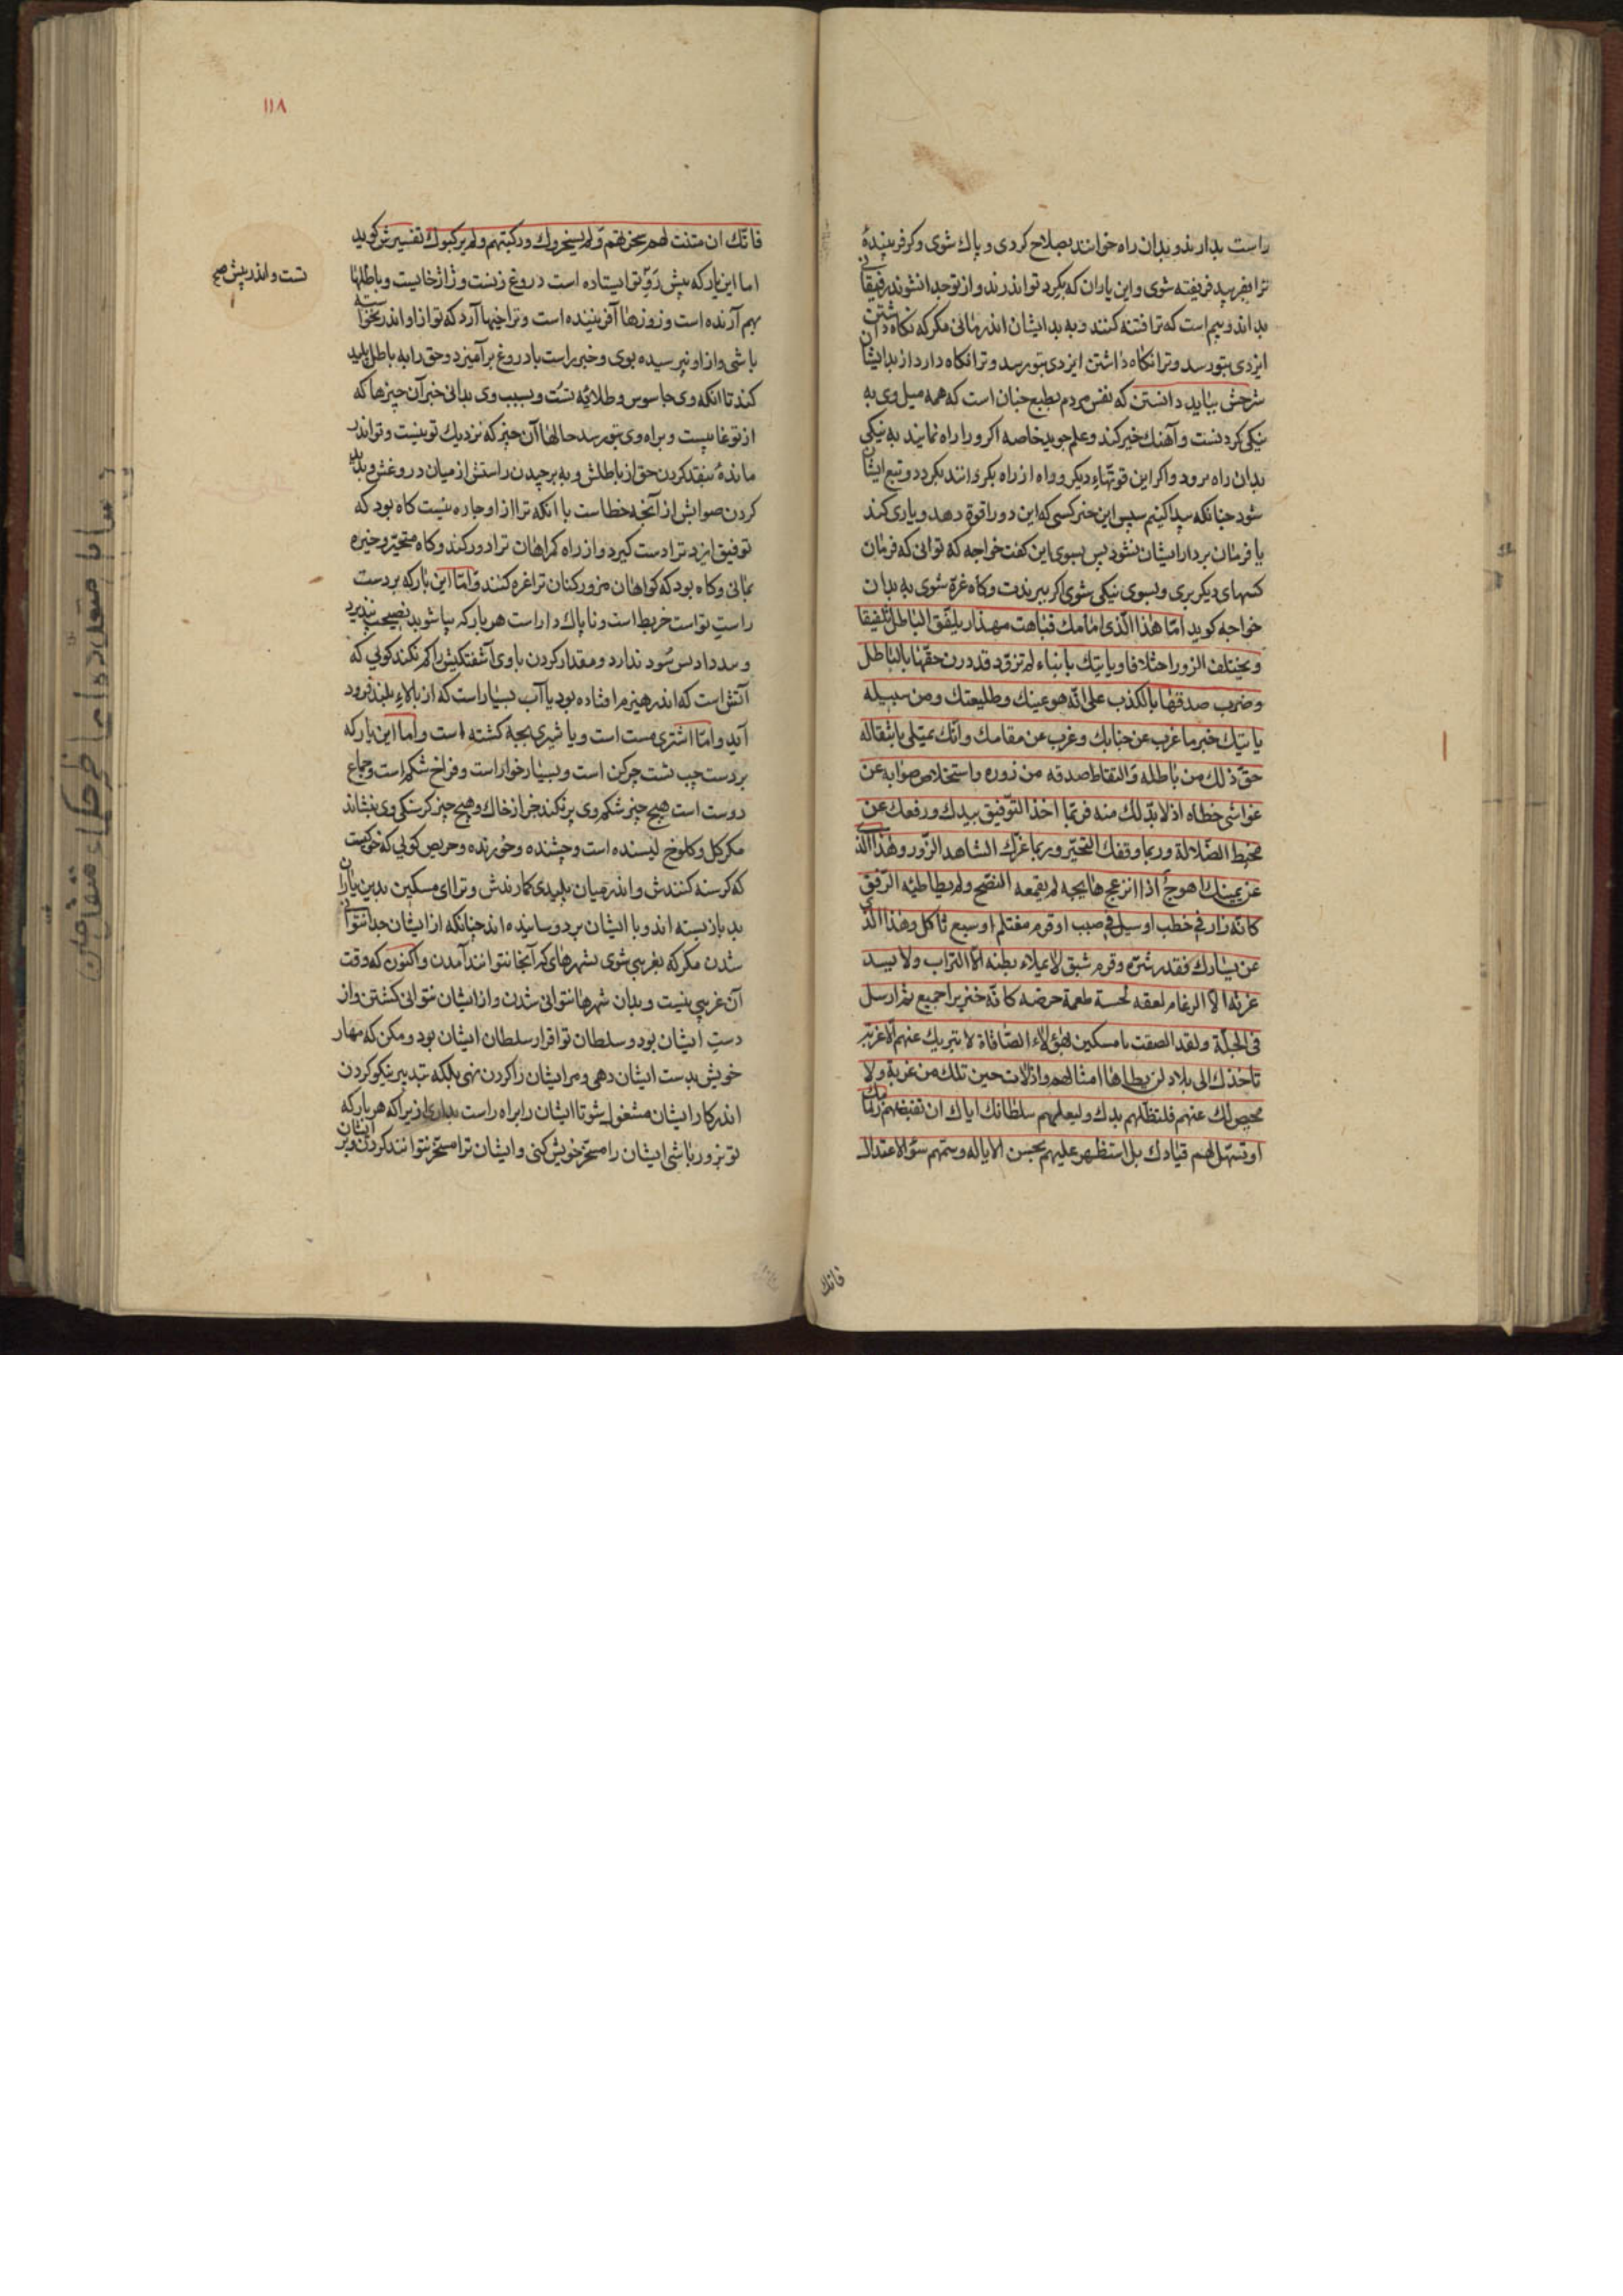 راست بدارند و بدان راه خوانند بصلاح کردی و پاك شوی و کر فریبندهٔ
ترا بفریبد فریفته شوی و این یاران که بکرد تو اندرند و از تو جدا نشوند رفیقانی
بد اند و بیم است که ترا فتنه کنند و به بد ایشان اندر مانی مکر که نکاه داشتن
ایزدی بتو رسد و ترا نکاه داشتن ایزدی بتو رسد و ترا نکاه دارد از بد ایشان
شرحش بباید دانستن که نفس مردم بطبع چنان است که همه میل وی به
نیکی کردنست و آهنك خیر کند و علم جوید خاصه اکر ورا راه نمایند به نیکی
بدان راه برود و اکر این قوتهاء دیکر وراه از راه بکردانند بکردد و تبع ایشان
شود چنانکه پیدا کنیم سپس این خبر کسی که این دو را قوة دهد و یاری کند
یا فرمان بردار ایشان نشود پس بسوی این کفت خواجه که توانی که فرمان
کسهای دیکر بری و بسوی نیکی شوی اکر ببرندت و کاه غرة شوی به بدان
خواجه کوید امّا هذا الّذی امامك فباهت مهذار یلفّق الباطل تلفیقا
و یختلف الزور اختلاقا و یاتیك بانباء لم تزوّد قد درن حقّها بالباطل
و ضرب صدقها بالکذب علی انّه هو عینك و طلیعتك و من سبیله
یاتیك خبر ما غرب عن جنابك و عزب عن مقامك و انّك مبتلی بانتقاد
حقّ ذلك من باطله و التقاط صدقه من زوره و استخلاص صوابه عن
غواشی خطاه اذ لا بدّ لك منه فربّما اخذ التوفیق بیدك و رفعك عن
محیط الضّلالة و ربما وقفك التحیّر و ربما غرّك الشاهد الزّور و هذا الّذی
عن یمینك اهوج اذا انزعج هایجه لم یقمعه النصح و لم یطاطئه الرّفق
کانّه نار فی حطب او سیل فی صبب او قرم مغتلم او سبع ثاکل و هذا الّذی
عن یسارك فقذر شره و قرم شبق لا یملاء بطنه الّا التراب و لا یسد
غرثه الا الرغام لعقه لحسة طعمة حرصه کانّه خنزیر اجیع ثم ارسل
فی الجلّة و لقد الصقت یا مسکین بهؤلاء الصاقاة لا یبریك عنهم الّا غربة
تاخذك الی بلاد لم یطاها امثالهم و اذ لات حین تلك من غربة و لا
محیص لك عنهم فلتظلّهم یدك و لیعلهم سلطانك ایاك ان تقبضهم زمامك
او تسهّل لهم قیادك بل استظهر علیهم بحسن الایاله و سمهم سوم الاعتدال
فانك
۱۱۸
فانّك ان متنت لهم سخرتهم و لم یسخروك و رکبتهم و لم یرکبوك تفسیرش کوید
اما این یار که پیش رَوِ تو ایستاده است دروغ زنست و ژاژ خایست و باطلها
بهم آرنده است و زورها آفریننده است و ترا خبرها آرد که تو از او اندر نخواسته
باشی و از او نپرسیده بوی و خبر راست با دروغ برآمیزد و حق را به باطل پلید
کند تا انکه وی جاسوس و طلایهٔ تست و بسبب وی بدانی خبر آن چیزها که
از تو غایبست و براه وی بتو رسد حالها آن چیز که نزدیك تو نیست و تو اندر
ماندهٔ بنقد کردن حق از باطلش و به برچیدن راستش از میان دروغش و پدید
کردن صوابش از آنچه خطاست با انکه ترا از او چاره نیست کاه بود که
توفیق ایزد ترا دست کیرد و از راه کمراهان ترا دور کند و کاه متحیّر و خیره
بمانی و کاه بود که کواهان مزور کنان ترا غره کنند و امّا این یار که بر دست
راستِ تو است خربط است و ناپاك دار است هر بار که بپا شوید نصیحت نپذیرد
و سد دادیس سُود ندارد و مقدار کردن با وی آشفتکیش را کم نکند کوئی که
آتش است که اندر هیزم افتاده بود یا آب بسیار است که از بالاءِ بلند فرود
آید و امّا اشتری مست است و یا شیری بچه کشته است و اما این یار که
بر دست چپ تست چرکن است و بسیار خوار است و فراخ شکم است و جماع
دوست است هیچ چیز شکم وی پر نکند جز از خاك و هیچ چیز کرسنکی وی ننشاند
مکر کل و کلوخ لیسنده است و چشنده و خورنده و حریص کوئی که خوکیست
که کرسنه کنندش و اندر میان پلیدی کمارندش و ترا ای مسکین بدین یاران
بد باز بسته اند و با ایشان بردوسانیده اند چنانکه از ایشان جدا نتوانی
شدن مکر که بغریبی شوی بشهرهای که آنجا نتوانند آمدن و اکنون که وقت
آن غریبی نیست و بدان شهرها نتوانی شدن و از ایشان نتوانی کشتن و از
دستِ ایشان بود و سلطان تو اقرار سلطان ایشان بود و مکن که مهار
خویش بدست ایشان دهی و مر ایشان را کردن نهی بلکه بتدبیر نیکو کردن
اندر کار ایشان مشغول شو تا ایشان را براه راست بداری زیرا که هر بار که
تو بزور باشی ایشان را مسخّر خویش کنی و ایشان ترا مسخّر نتوانند کردن و بر ایشان
تست و اندر پیش صح